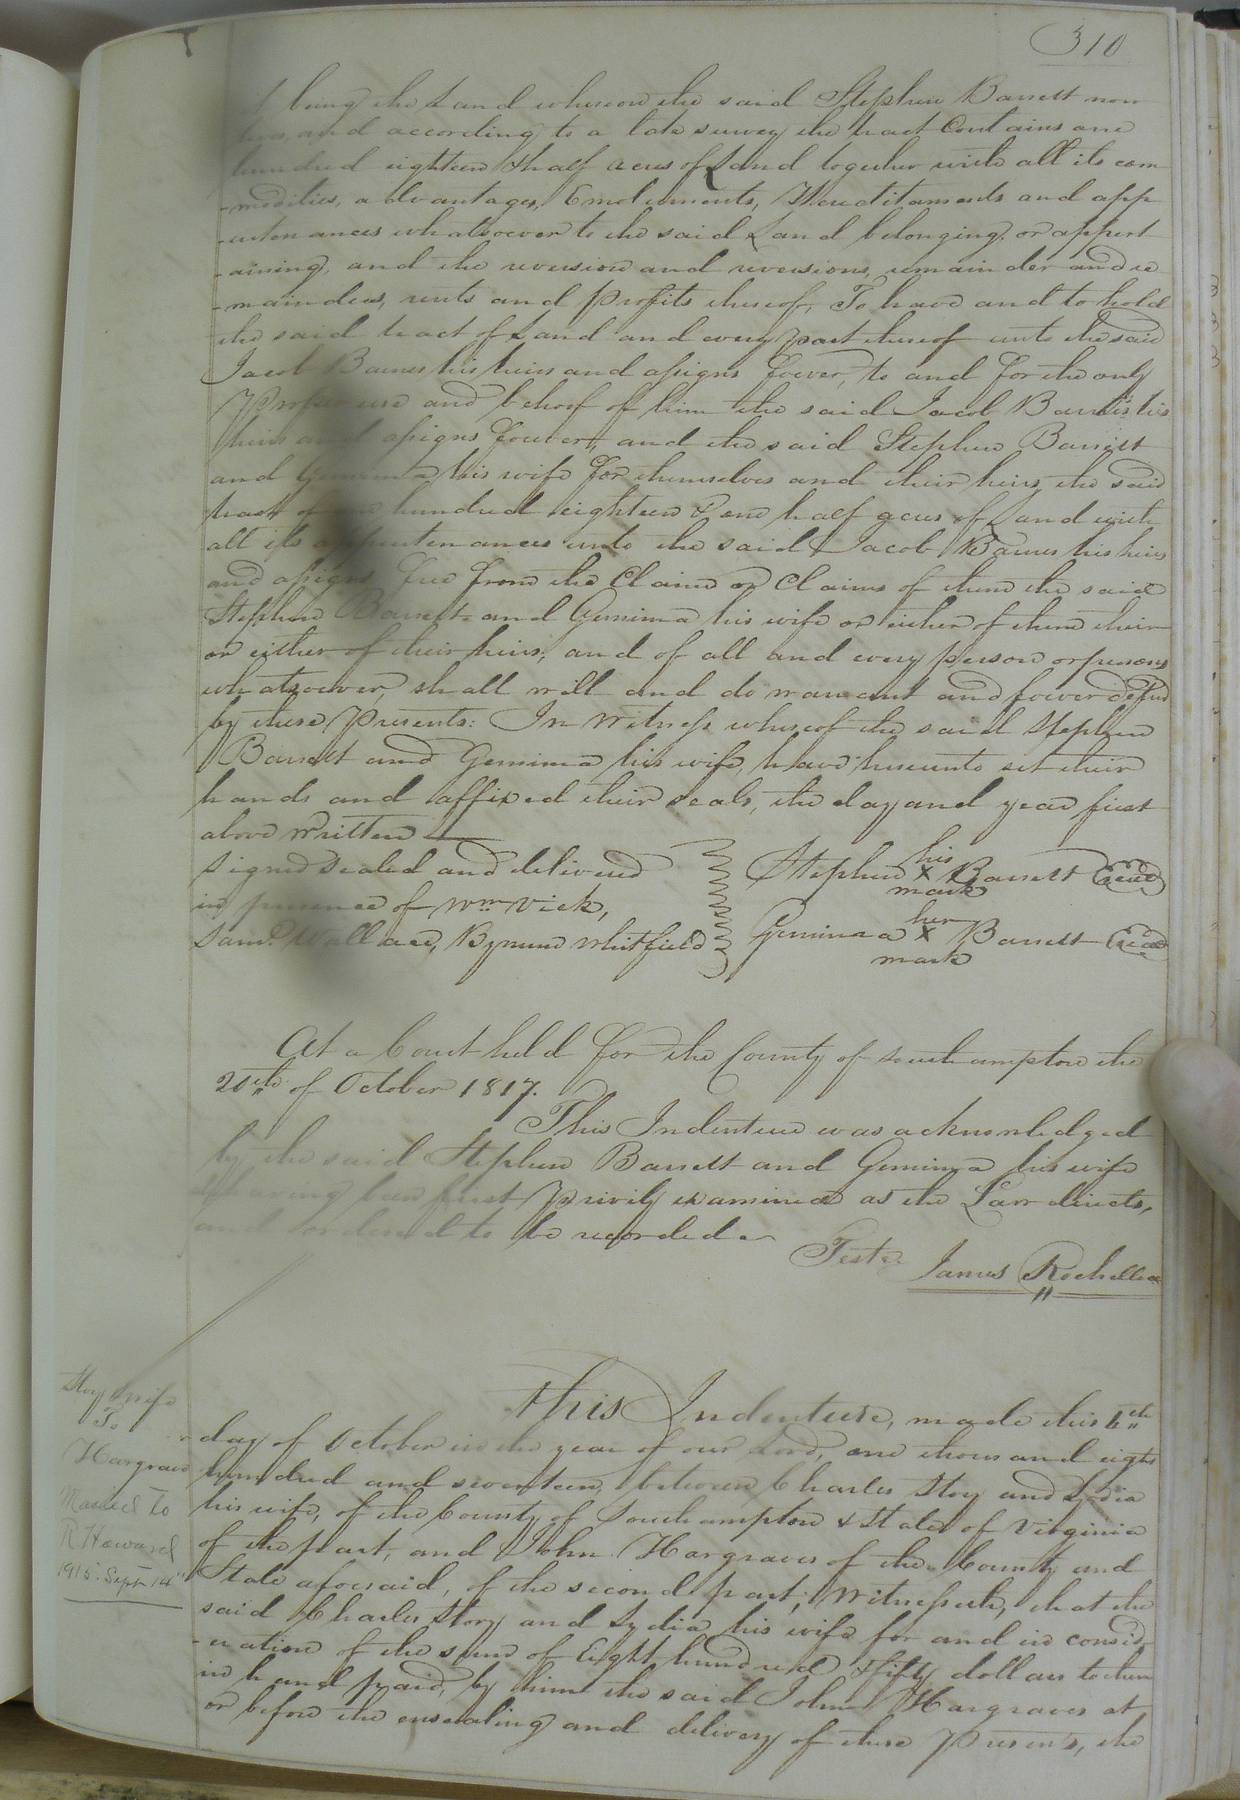 310
being the Land whereon the said Stephen Barrett now
lives, and according to a late survey the tract Contains one
hundred eighteen & half acres of Land together with all its com
-modities, advantages, Emoluments, Hereditaments and app
-urtenances whatsoever to the said Land belonging or appert
-aining, and the reversion and reversions, remainder and re
-mainders, rents and profits thereof, To have and to hold
the said tract of Land and every part thereof unto the said
Jacob Barnes his heirs and assigns forever, to and for the only
Proper use and behoof of him the said Jacob Barnes his
heirs and assigns forever, and the said Stephen Barrett
and Gemima his wife for themselves and their heirs, the said
tract of one hundred eighteen & one half acres of Land with
all its appurtenances unto the said Jacob Barnes his heirs
and assigns, free from the Claim or Claims of them the said
Stephen Barrett and Gemima his wife or either of them their
or either of their heirs, and of all and every person or persons
whatsoever, shall will and do warrant and forever defend
by these Presents: In Witness whereof the said Stephen
Barrett and Gemima his wife, have hereunto set their
hands and affixed their seals, the day and year first
above written
Signed Sealed and delivered
in presence of Wm Vick,
Saml. Wallace, Bynum Whitfield
his
Stephen X Barrett Seal
mark
her
Gemima X Barrett Seal
mark
At a Court held for the County of Southampton the
20th of October 1817.
This Indenture was acknowledged
by the said Stephen Barrett and Gemima his wife
She having been first Privily examined as the Law directs,
and ordered to be recorded
Teste James Rochelle
Story & wife
To
Hargraves
Mailed to
R Howard
1915 Sept 14"
This Indenture, made this 4th
day of October in the year of our Lord, one thousand eight
hundred and seventeen, between Charles Story and Lydia
his wife, of the County of Southampton & State of Virginia
of the part, and John Hargraves of the County and
State aforesaid, of the second part; Witnesseth, that the
said Charles Story and Lydia his wife for and in consid
-eration of the sum of Eight hundred & fifty dollars to them
in hand paid, by him the said John Hargraves at
or before the ensealing and delivery of these Presents, the